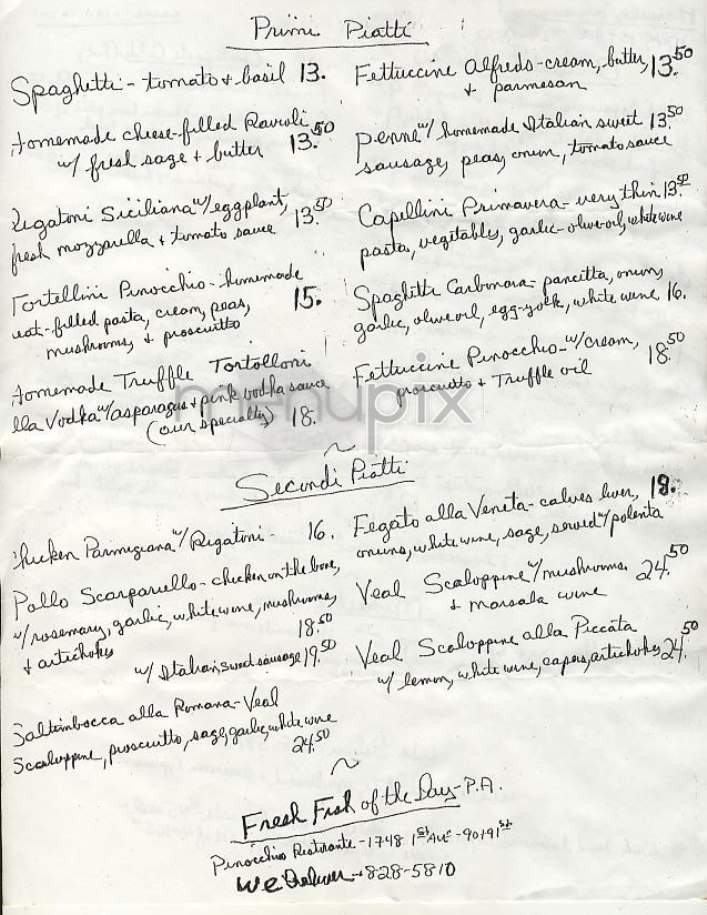 Primi Piatti
Spaghetti - tomato + basil 13.
Homemade cheese-filled Ravioli
w/ fresh sage + butter 13.50
Rigatoni Siciliana w/ eggplant,
fresh mozzarella + tomato sauce 13.50
Tortellini Pinocchio - homemade
eat-filled pasta, cream, peas,
mushrooms, + proscuitto 15.
Homemade Truffle Tortolloni
lla Vodka w/ asparagus + pink vodka sauce
(our specialty) 18.
Fettuccine Alfredo - cream, butter, 13.50
+ parmesan
Penne w/ homemade Italian sweet 13.50
sausage, peas, onion, tomato sauce
Capellini Primavera - very thin 13.50
pasta, vegetables, garlic - olive oil, white wine
Spaghetti Carbonara - pancitta, onions
garlic, olive oil, egg-yolk, white wine 16.
Fettuccine Pinocchio - w/ cream,
proscuitto + Truffle oil 18.50
~
Secondi Piatti
Chicken Parmigiana w/ Rigatoni - 16.
Pollo Scarpariello - chicken on the bone,
w/ rosemary, garlic, white wine, mushrooms,
+ artichokes 18.50
w/ Italian sweet sausage 19.50
Saltimbocca alla Romana - Veal
Scaloppine, proscuitto, sage, garlic, white wine
24.50
Fegato alla Veneta - calves liver, 18.
onions, white wine, sage, served w/ polenta
Veal Scaloppine w/ mushrooms 24.50
+ marsala wine
Veal Scaloppine alla Piccata
w/ lemon, white wine, capers, artichokes 24.50
~
Fresh Fish of the Day - P.A.
Pinocchio Ristorante - 1748 1st Ave - 90+91st
We Deliver → 828-5810
menupix